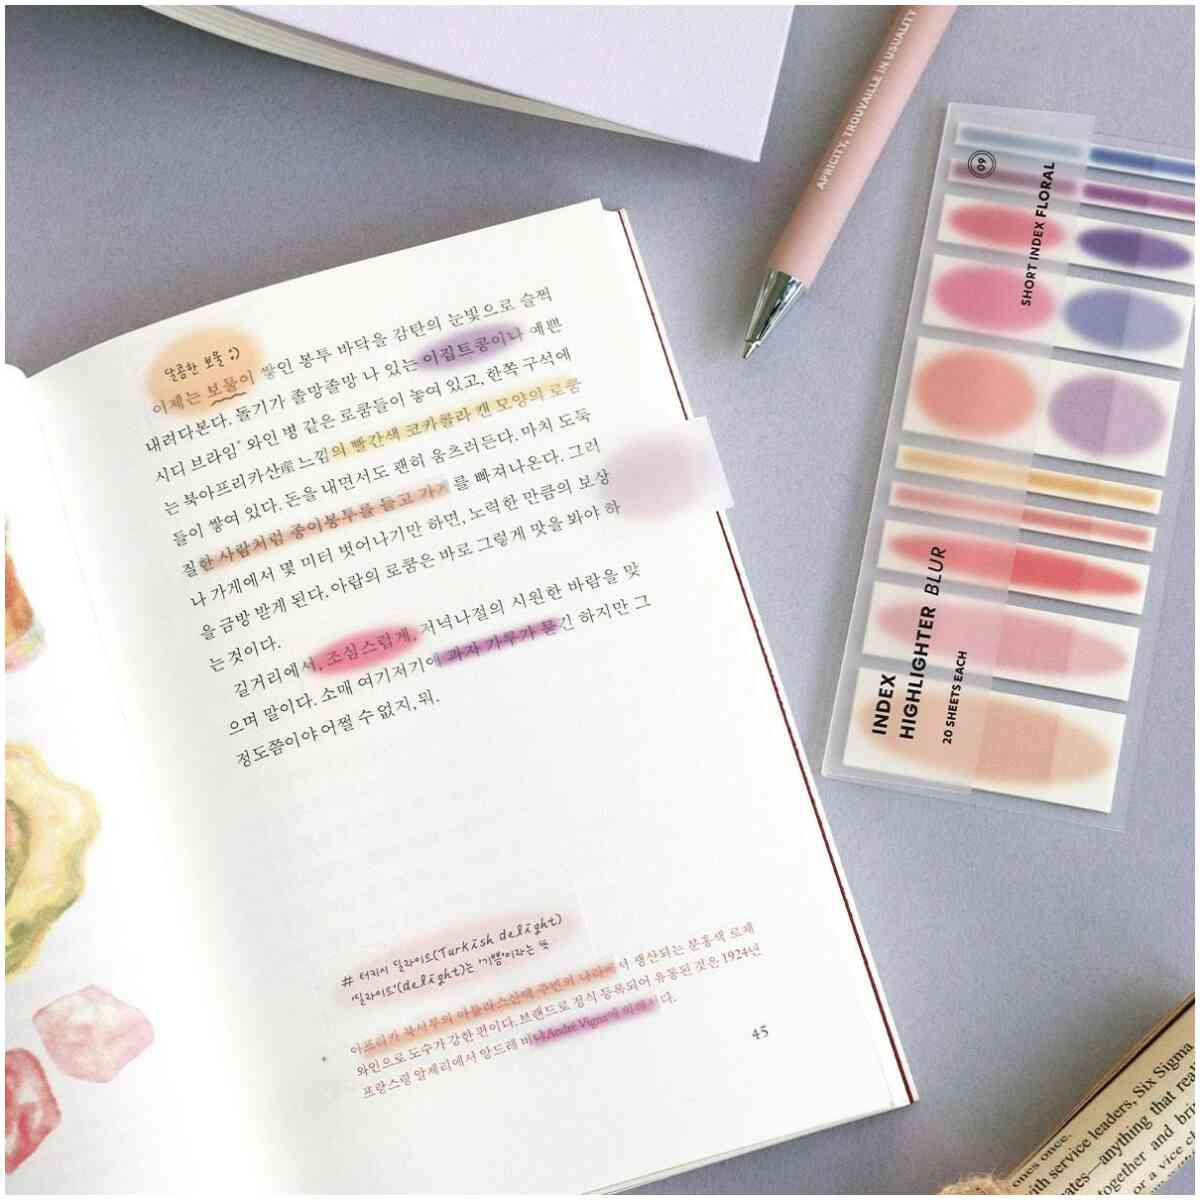 달콤한 보물 :)
이제는 보물이 쌓인 봉투 바닥을 감탄의 눈빛으로 슬쩍
내려다본다. 돌기가 졸망졸망 나 있는 이집트콩이나 예쁜
시디 브라임* 와인 병 같은 로쿰들이 놓여 있고, 한쪽 구석에
는 북아프리카산産 느낌의 빨간색 코카콜라 캔 모양의 로쿰
들이 쌓여 있다. 돈을 내면서도 괜히 움츠러든다. 마치 도둑
질한 사람처럼 종이봉투를 들고 가게를 빠져나온다. 그러
나 가게에서 몇 미터 벗어나기만 하면, 노력한 만큼의 보상
을 금방 받게 된다. 아랍의 로쿰은 바로 그렇게 맛을 봐야 하
는 것이다.
길거리에서, 조심스럽게, 저녁나절의 시원한 바람을 맞
으며 말이다. 소매 여기저기에 과자 가루가 묻긴 하지만 그
정도쯤이야 어쩔 수 없지, 뭐.
# 터키시 딜라이트(Turkish delight)
'딜라이트'(delight)는 '기쁨'이라는 뜻
* 아프리카 북서부의 아틀라스산맥 주변의 나라에서 생산되는 분홍색 로제
와인으로 도수가 강한 편이다. 브랜드로 정식 등록되어 유통된 것은 1924년
프랑스령 알제리에서 앙드레 비냐André Vigna에 의해서다.
45
APRICITY, TROUVAILLE IN USUALITY
09
SHORT INDEX FLORAL
INDEX
HIGHLIGHTER BLUR
20 SHEETS EACH
ones once.
with service leaders, Six Sigma
ates—anything that real
together and bri
or a vice c